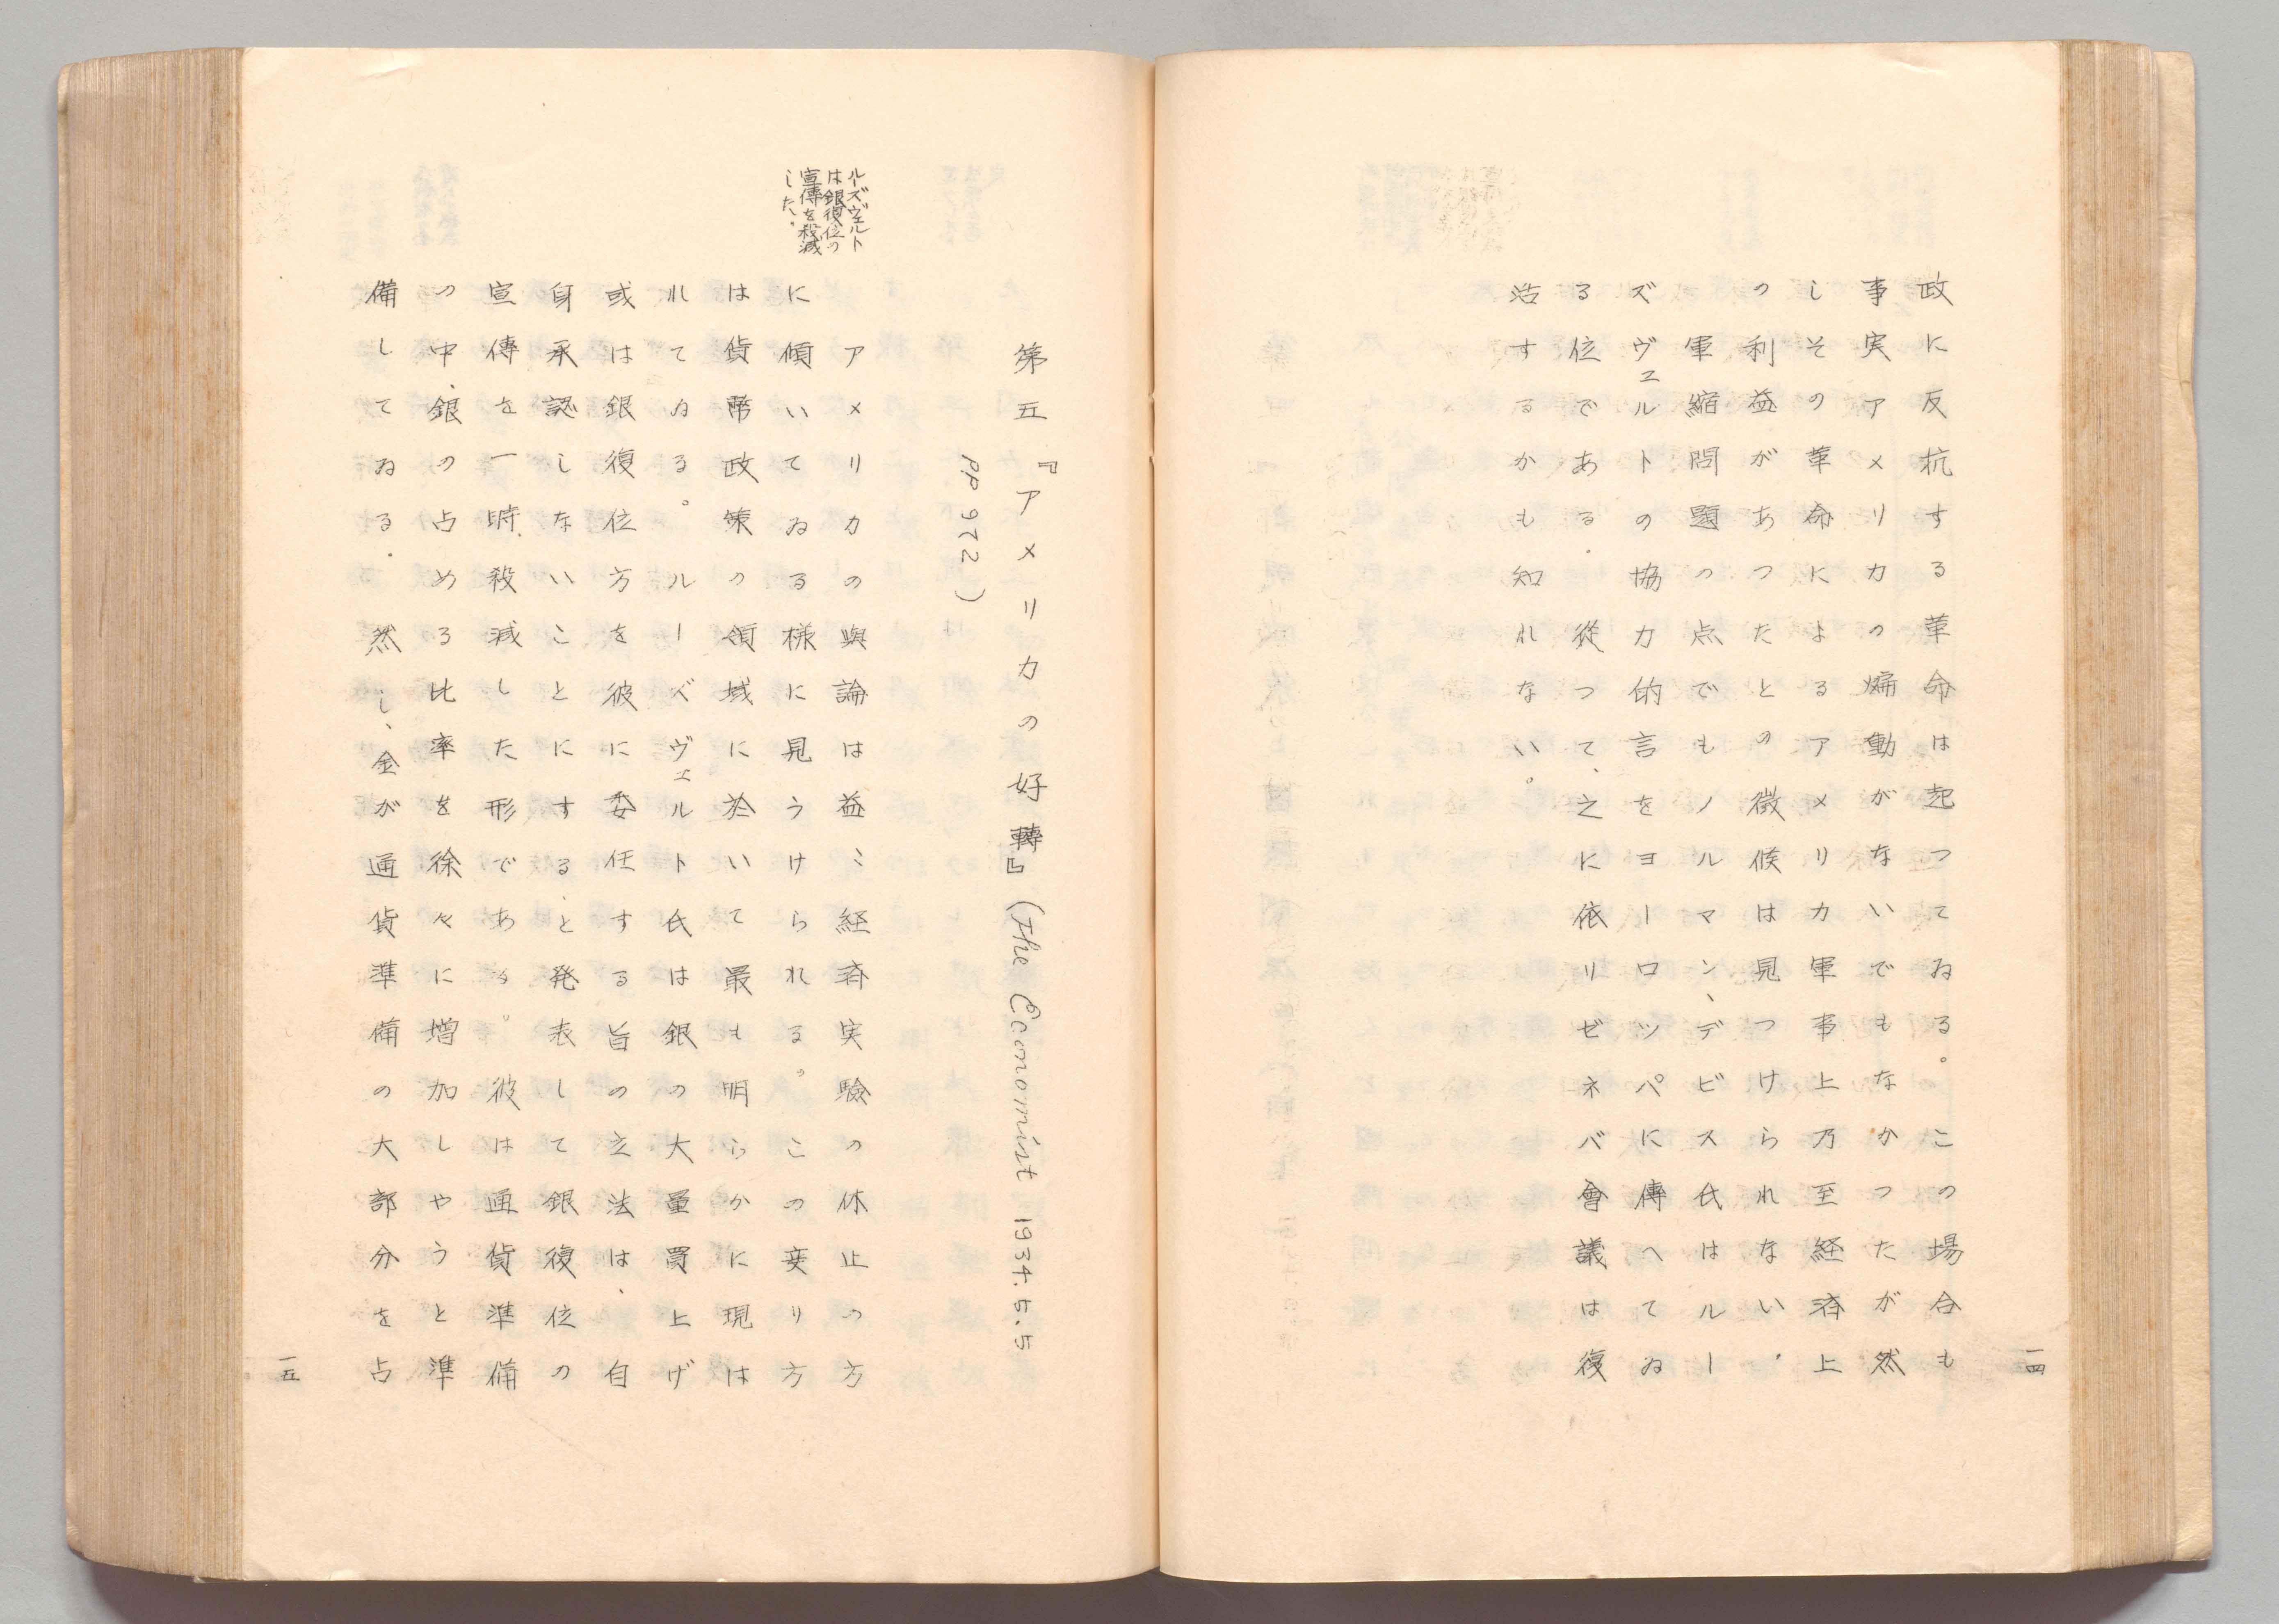 政に反抗する革命は起つてゐる。この場合も
事実アメリカの煽動がないでもなかつたが然
しその革命によるアメリカ軍事上乃至経済上
の利益があつたとの徴候は見つけられない.
軍縮問題の点でもノルマン、デビス氏はルー
ズヴエルトの協力的言をヨーロツパに傳へてゐ
る位である.従つて、之に依リゼネバ會議は復
活するかも知れない。
一四
第五『アメリカの好轉』(The Economist 1934.5.5
PP 972)
ルーズヴエルト
は銀復位の
宣傳を殺減
した。
アメリカの輿論は益〻経済実驗の休止の方
に傾いてゐる様に見うけられる。この変り方
は貨幣政策の領域に於いて最も明らかに現は
れてゐる。ルーズヴエルト氏は銀の大量買上げ
或は銀復位方を彼に委任する旨の立法は、自
身承認しないことにする、と発表して銀復位の
宣傳を一時、殺減した形である。彼は通貨準備
の中、銀の占める比率を徐々に増加しやうと準
備してゐる.然し、金が通貨準備の大部分を占
一五